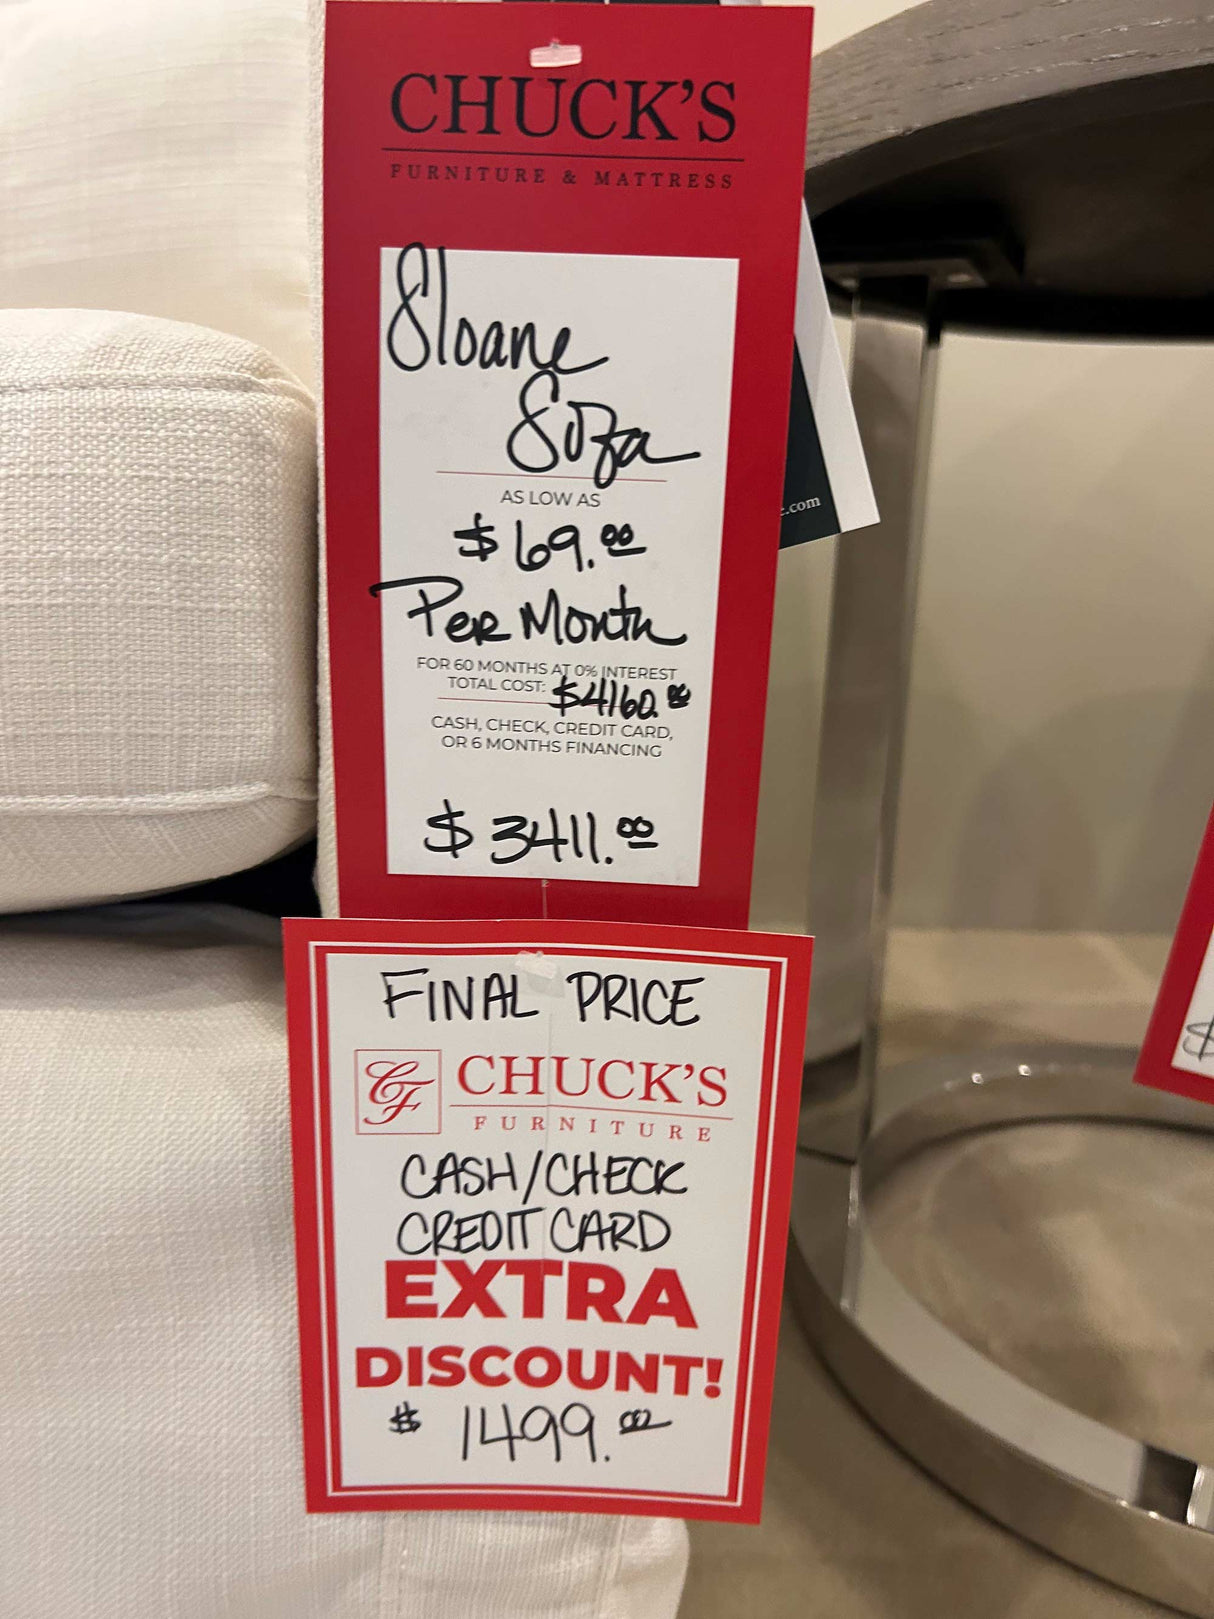 CHUCK'S
FURNITURE & MATTRESS
Sloane
Sofa
AS LOW AS
$69.00
Per Month
FOR 60 MONTHS AT 0% INTEREST
TOTAL COST: $4160.00
CASH, CHECK, CREDIT CARD,
OR 6 MONTHS FINANCING
$3411.00
.com
FINAL PRICE
CF
CHUCK'S
FURNITURE
CASH/CHECK
CREDIT CARD
EXTRA
DISCOUNT!
$1499.00
$